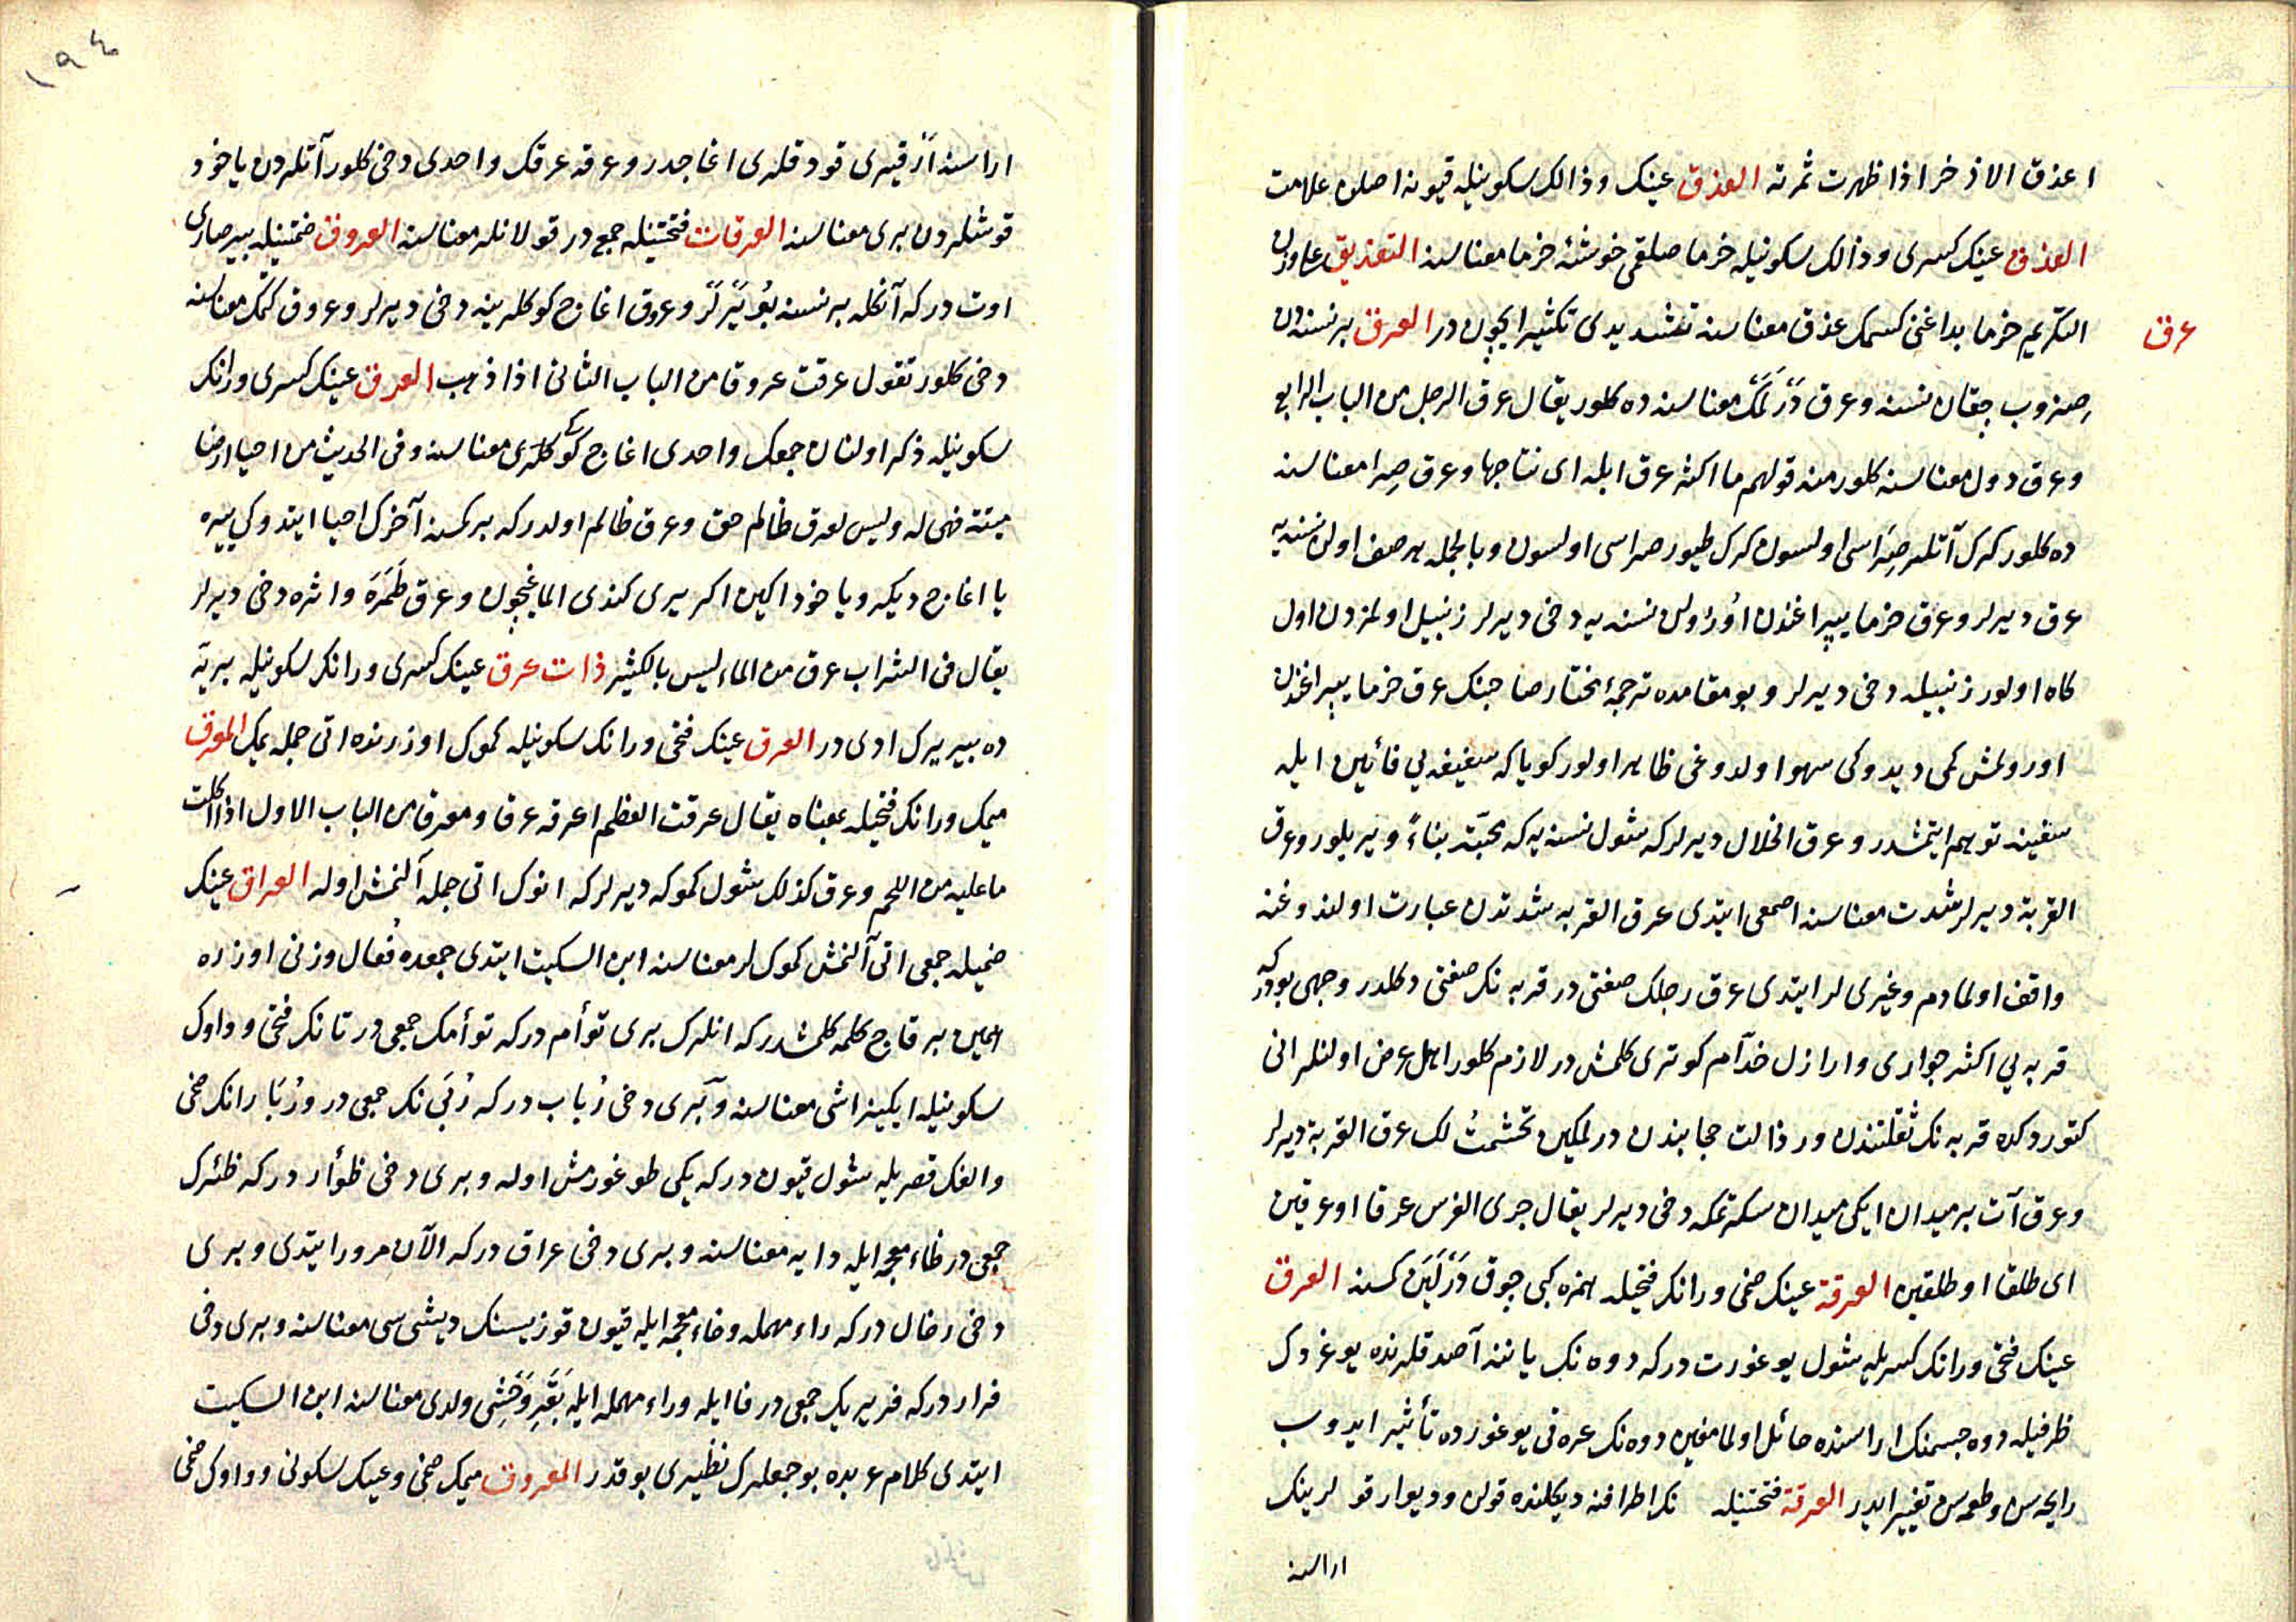 اعذق الاذخر اذا ظهرت ثمرته العذق عينك وذالك سكونيله قيونه اصلون علامت
العذق عينك كسرى وذالك سكونيله خرما صلقمى خوشهٔ خرما معناسنه التعذيق على وزن
التكريم خرما بداغنى كسمك عذق معناسنه تشديدى تكثير ايچون در العرق بر نسنه دن
عرق
صزوب چقان نسنه وعرق درلمك معناسنه ده كلور يقال عرق الرجل من الباب الرابع
وعرق دول معناسنه كلور منه قولهم ما اكثر عرق ابله اى نتاجها وعرق صرا معناسنه
ده كلور كرك آتلر صراسى اولسون كرك طيور صراسى اولسون وبالجمله بر صف اولان نسنه يه
عرق ديرلر وعرق خرما يپراغندن اورلن نسنه يه دخى ديرلر زنبيل اولمزدن اول
كاه اولور زنبيله دخى ديرلر وبو مقامده ترجمهٔ مختار صاحبنك عرق خرما يپراغندن
اورولمش كمى ديدوكى سهو اولدوغى ظاهر اولور كوياكه سفيفه يى فائين ايله
سفينه توهم ايتمشدر وعرق الخلال ديرلر كه شول نسنه يه كه محبّة بناءً ويريلور وعرق
القربة ديرلر شدت معناسنه اصمعى ايتدى عرق القربه شدتدن عبارت اولدوغنه
واقف اولمادم وغيرى لر ايتدى عرق رجلك صفتى در قربه نك صفتى دكلدر وجهى بودركه
قربه يى اكثر جوارى واراذل خدّام كوترى كلمش در لازم كلور اهل عرض اولنلر انى
كتوردكده قربه نك ثقلتندن ورذالت حجابندن درلمكين تجشمتُ لك عرق القربة ديرلر
وعرق آت بر ميدان ايكى ميدان سكرتمكه دخى ديرلر يقال جرى الفرس عرقا او عرقين
اى طلقا او طلقين العرقة عينك ضمى ورانك فتحيله همزه كبى چوق درلين كسنه العرق
عينك فتحى ورانك كسريله شول يوغورت در كه دوه نك ياننه آصدقلرنده يوغردك
ظرفيله دوه جسمنك اراسنده حائل اولمامغين دوه نك عرقى يوغورده تأثير ايدوب
رايحه سن وطعمه سن تغيير ايدر العرقة فتحتينله نك اطرافنه ديكلنده قولان وديوار قو لرينك
اراسنه
١٩٤
اراسنه ارقيرى قودقلرى اغاجدر وعرقه عرقك واحدى دخى كلور آتلردن ياخود
قوشلردن برى معناسنه العرقات فتحتينله جمع در قولانلر معناسنه العروق ضمتينله بير صارى
اوت در كه آنكله بر نسنه بويرلر وعروق اغاج كوكلرينه دخى ديرلر وعروق كتمك معناسنه
دخى كلور تقول عرقت عروقا من الباب الثانى اذا ذهب العرق عينك كسرى ورانك
سكونيله ذكر اولنان جمعك واحدى اغاج كوكلرى معناسنه وفى الحديث من احيا ارضا
ميتة فهى له وليس لعرق ظالم حق وعرق ظالم اولدر كه بر كسنه آخرك احيا ايتدوكى يره
يا اغاج ديكه وياخود اكين اكر يرى كندى المغيچون وعرق طمره واثره دخى ديرلر
يقال فى الشراب عرق من الماء ليس بالكثير ذات عرق عينك كسرى ورانك سكونيله بريه
ده بير يرك ادى در العرق عينك فتحى ورانك سكونيله كموك اوزرنده اتى جمله يمك المعرق
ميمك ورانك فتحيله بمعناه يقال عرقت العظم اعرقه عرقا ومعرقا من الباب الاول اذا اكلت
ما عليه من اللحم وعرق كذلك شول كموكه ديرلر كه انوك اتى جمله آلنمش اوله العراق عينك
ضميله جمعى اتى آلنمش كموكلر معناسنه ابن السكيت ايتدى جمعده فُعال وزنى اوزره
همين بر قاچ كلمه كلمشدر كه انلرك برى توأم در كه توأمك جمعى در تانك فتحى وواوك
سكونيله ايكيز اشى معناسنه وبرى دخى رُباب در كه رُبّى نك جمعى در ورُبّا رانك ضمى
والفك قصريله شول قيون در كه يكى طوغورمش اوله وبرى دخى ظوأر در كه ظئرك
جمعى در ظاء معجمه ايله دايه معناسنه وبرى دخى عراق در كه الآن مرور ايتدى وبرى
دخى رخال در كه راء مهمله وخاء معجمه ايله قيون قوزيسنك ديشى سى معناسنه وبرى دخى
فرار در كه فريرك جمعى در فا ايله وراء مهمله ايله بَقَرِ وَحْشِى ولدى معناسنه ابن السكيت
ايتدى كلام عربده بو جمعلرك نظيرى يوقدر المعروق ميمك ضمى وعينك سكونى وواوك ضمى